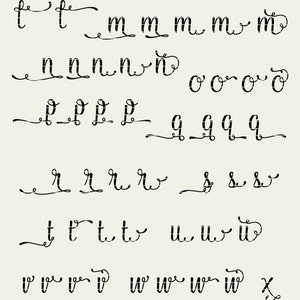 f f m m m m m
n n n n n o o o o
p p p p q q q q
r r r r s s s
t t t t u u u
v v v v w w w w x